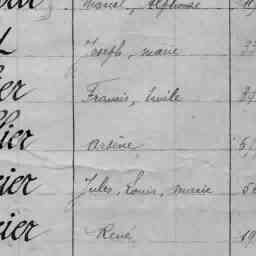 Marcel, Alphonse
Joseph, Marie
ier Francis, Emile
ier Arsène
ier Jules, Louis, Marie
ier René 19